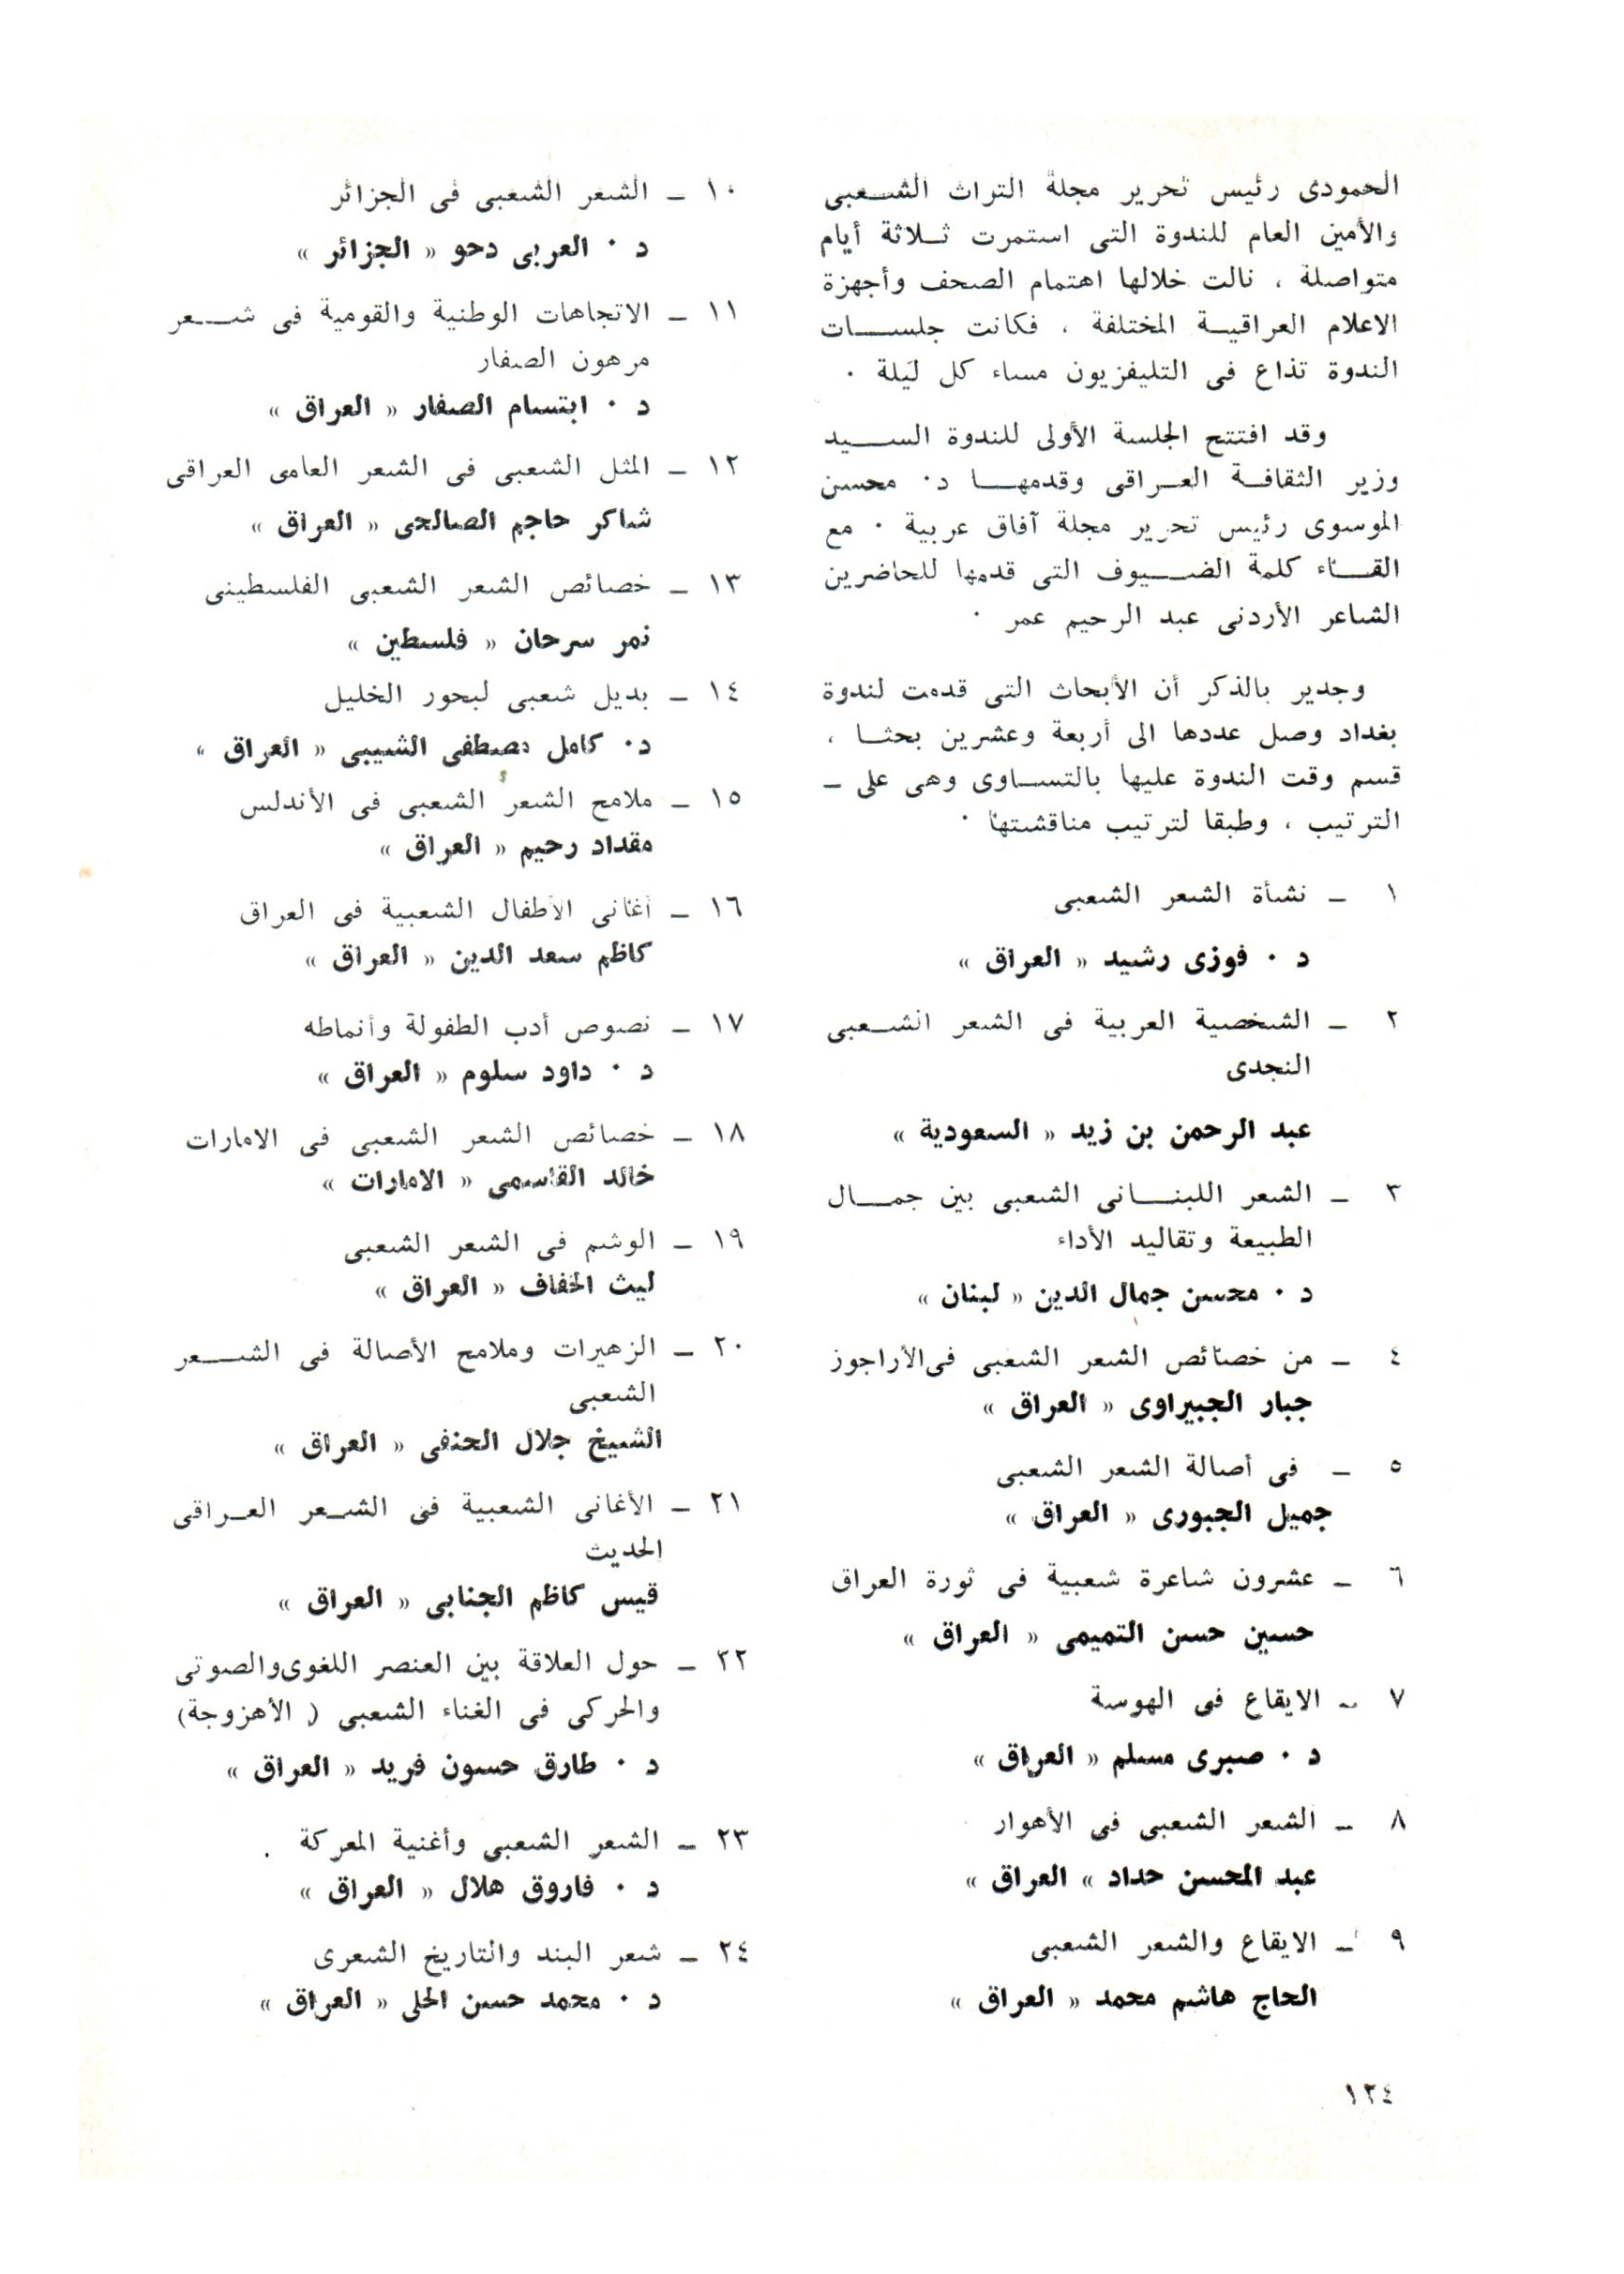 الحمودى رئيس تحرير مجلة التراث الشعبى
والأمين العام للندوة التى استمرت ثلاثة أيام
متواصلة ، نالت خلالها اهتمام الصحف وأجهزة
الاعلام العراقية المختلفة ، فكانت جلسات
الندوة تذاع فى التليفزيون مساء كل ليلة ٠
وقد افتتح الجلسة الأولى للندوة السيد
وزير الثقافة العراقى وقدمها د٠ محسن
الموسوى رئيس تحرير مجلة آفاق عربية ٠ مع
القاء كلمة الضيوف التى قدمها للحاضرين
الشاعر الأردنى عبد الرحيم عمر ٠
وجدير بالذكر أن الأبحاث التى قدمت لندوة
بغداد وصل عددها الى أربعة وعشرين بحثا ،
قسم وقت الندوة عليها بالتساوى وهى على ـ
الترتيب ، وطبقا لترتيب مناقشتها ٠
١ ـ نشأة الشعر الشعبى
د ٠ فوزى رشيد « العراق »
٢ ـ الشخصية العربية فى الشعر الشعبى
النجدى
عبد الرحمن بن زيد « السعودية »
٣ ـ الشعر اللبنانى الشعبى بين جمال
الطبيعة وتقاليد الأداء
د ٠ محسن جمال الدين « لبنان »
٤ ـ من خصائص الشعر الشعبى فى الأراجوز
جبار الجبيراوى « العراق »
٥ ـ فى أصالة الشعر الشعبى
جميل الجبورى « العراق »
٦ ـ عشرون شاعرة شعبية فى ثورة العراق
حسين حسن التميمى « العراق »
٧ ـ الايقاع فى الهوسة
د ٠ صبرى مسلم « العراق »
٨ ـ الشعر الشعبى فى الأهوار
عبد المحسن حداد » العراق »
٩ ـ الايقاع والشعر الشعبى
الحاج هاشم محمد « العراق »
١٠ ـ الشعر الشعبى فى الجزائر
د ٠ العربى دحو « الجزائر »
١١ ـ الاتجاهات الوطنية والقومية فى شعر
مرهون الصفار
د ٠ ابتسام الصفار « العراق »
١٢ ـ المثل الشعبى فى الشعر العامى العراقى
شاكر حاجم الصالحى « العراق »
١٣ ـ خصائص الشعر الشعبى الفلسطينى
نمر سرحان « فلسطين »
١٤ ـ بديل شعبى لبحور الخليل
د٠ كامل مصطفى الشيبى « العراق »
١٥ ـ ملامح الشعر الشعبى فى الأندلس
مقداد رحيم « العراق »
١٦ ـ أغانى الأطفال الشعبية فى العراق
كاظم سعد الدين « العراق »
١٧ ـ نصوص أدب الطفولة وأنماطه
د ٠ داود سلوم « العراق »
١٨ ـ خصائص الشعر الشعبى فى الامارات
خالد القاسمى « الامارات »
١٩ ـ الوشم فى الشعر الشعبى
ليث الخفاف « العراق »
٢٠ ـ الزهيرات وملامح الأصالة فى الشعر
الشعبى
الشيخ جلال الحنفى « العراق »
٢١ ـ الأغانى الشعبية فى الشعر العراقى
الحديث
قيس كاظم الجنابى « العراق »
٢٢ ـ حول العلاقة بين العنصر اللغوى والصوتى
والحركى فى الغناء الشعبى ( الأهزوجة)
د ٠ طارق حسون فريد « العراق »
٢٣ ـ الشعر الشعبى وأغنية المعركة .
د ٠ فاروق هلال « العراق »
٢٤ ـ شعر البند والتاريخ الشعرى
د ٠ محمد حسن الحلى « العراق »
١٢٤